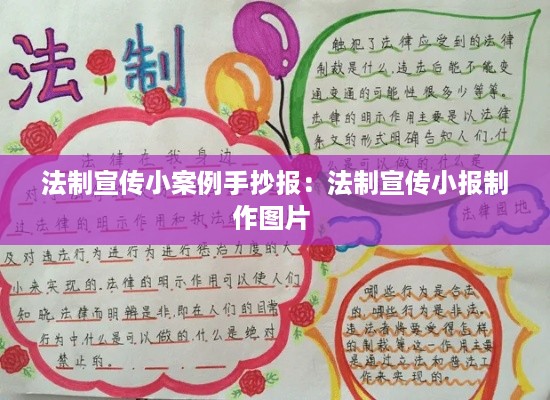 法制
触犯了法律应受到的法律
制裁是什么,违法后能不能变
通变通的可能性很多少等等。
法律的明示作用主要是以法律
条文的形式明确告知人们,什
法律在我身边
法制宣传小案例手抄报：法制宣传小报制
作图片
法律园地
律的明示作用和执法
及对违法行为进行为进行惩治力度的大
小来实现的.法律的明示作用可以使人们
知晓法律而明辨是非,即在人们的日常
行为中什么是可以做的.什么是绝对
禁止的。
哪些行为是合法
的,哪些行为是非法。
违法者将要受得怎样
的制裁等这一作用主要
是通过立法和普法工
作来实现的。